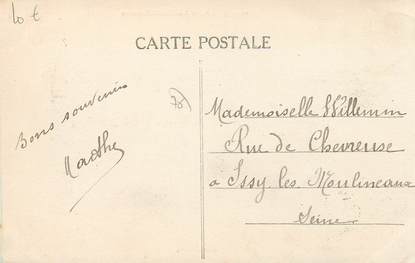 10 €
CARTE POSTALE
78
Bons souvenirs
Marthe
Mademoiselle Willemin
Rue de Chevreuse
a Issy les Moulineaux
Seine